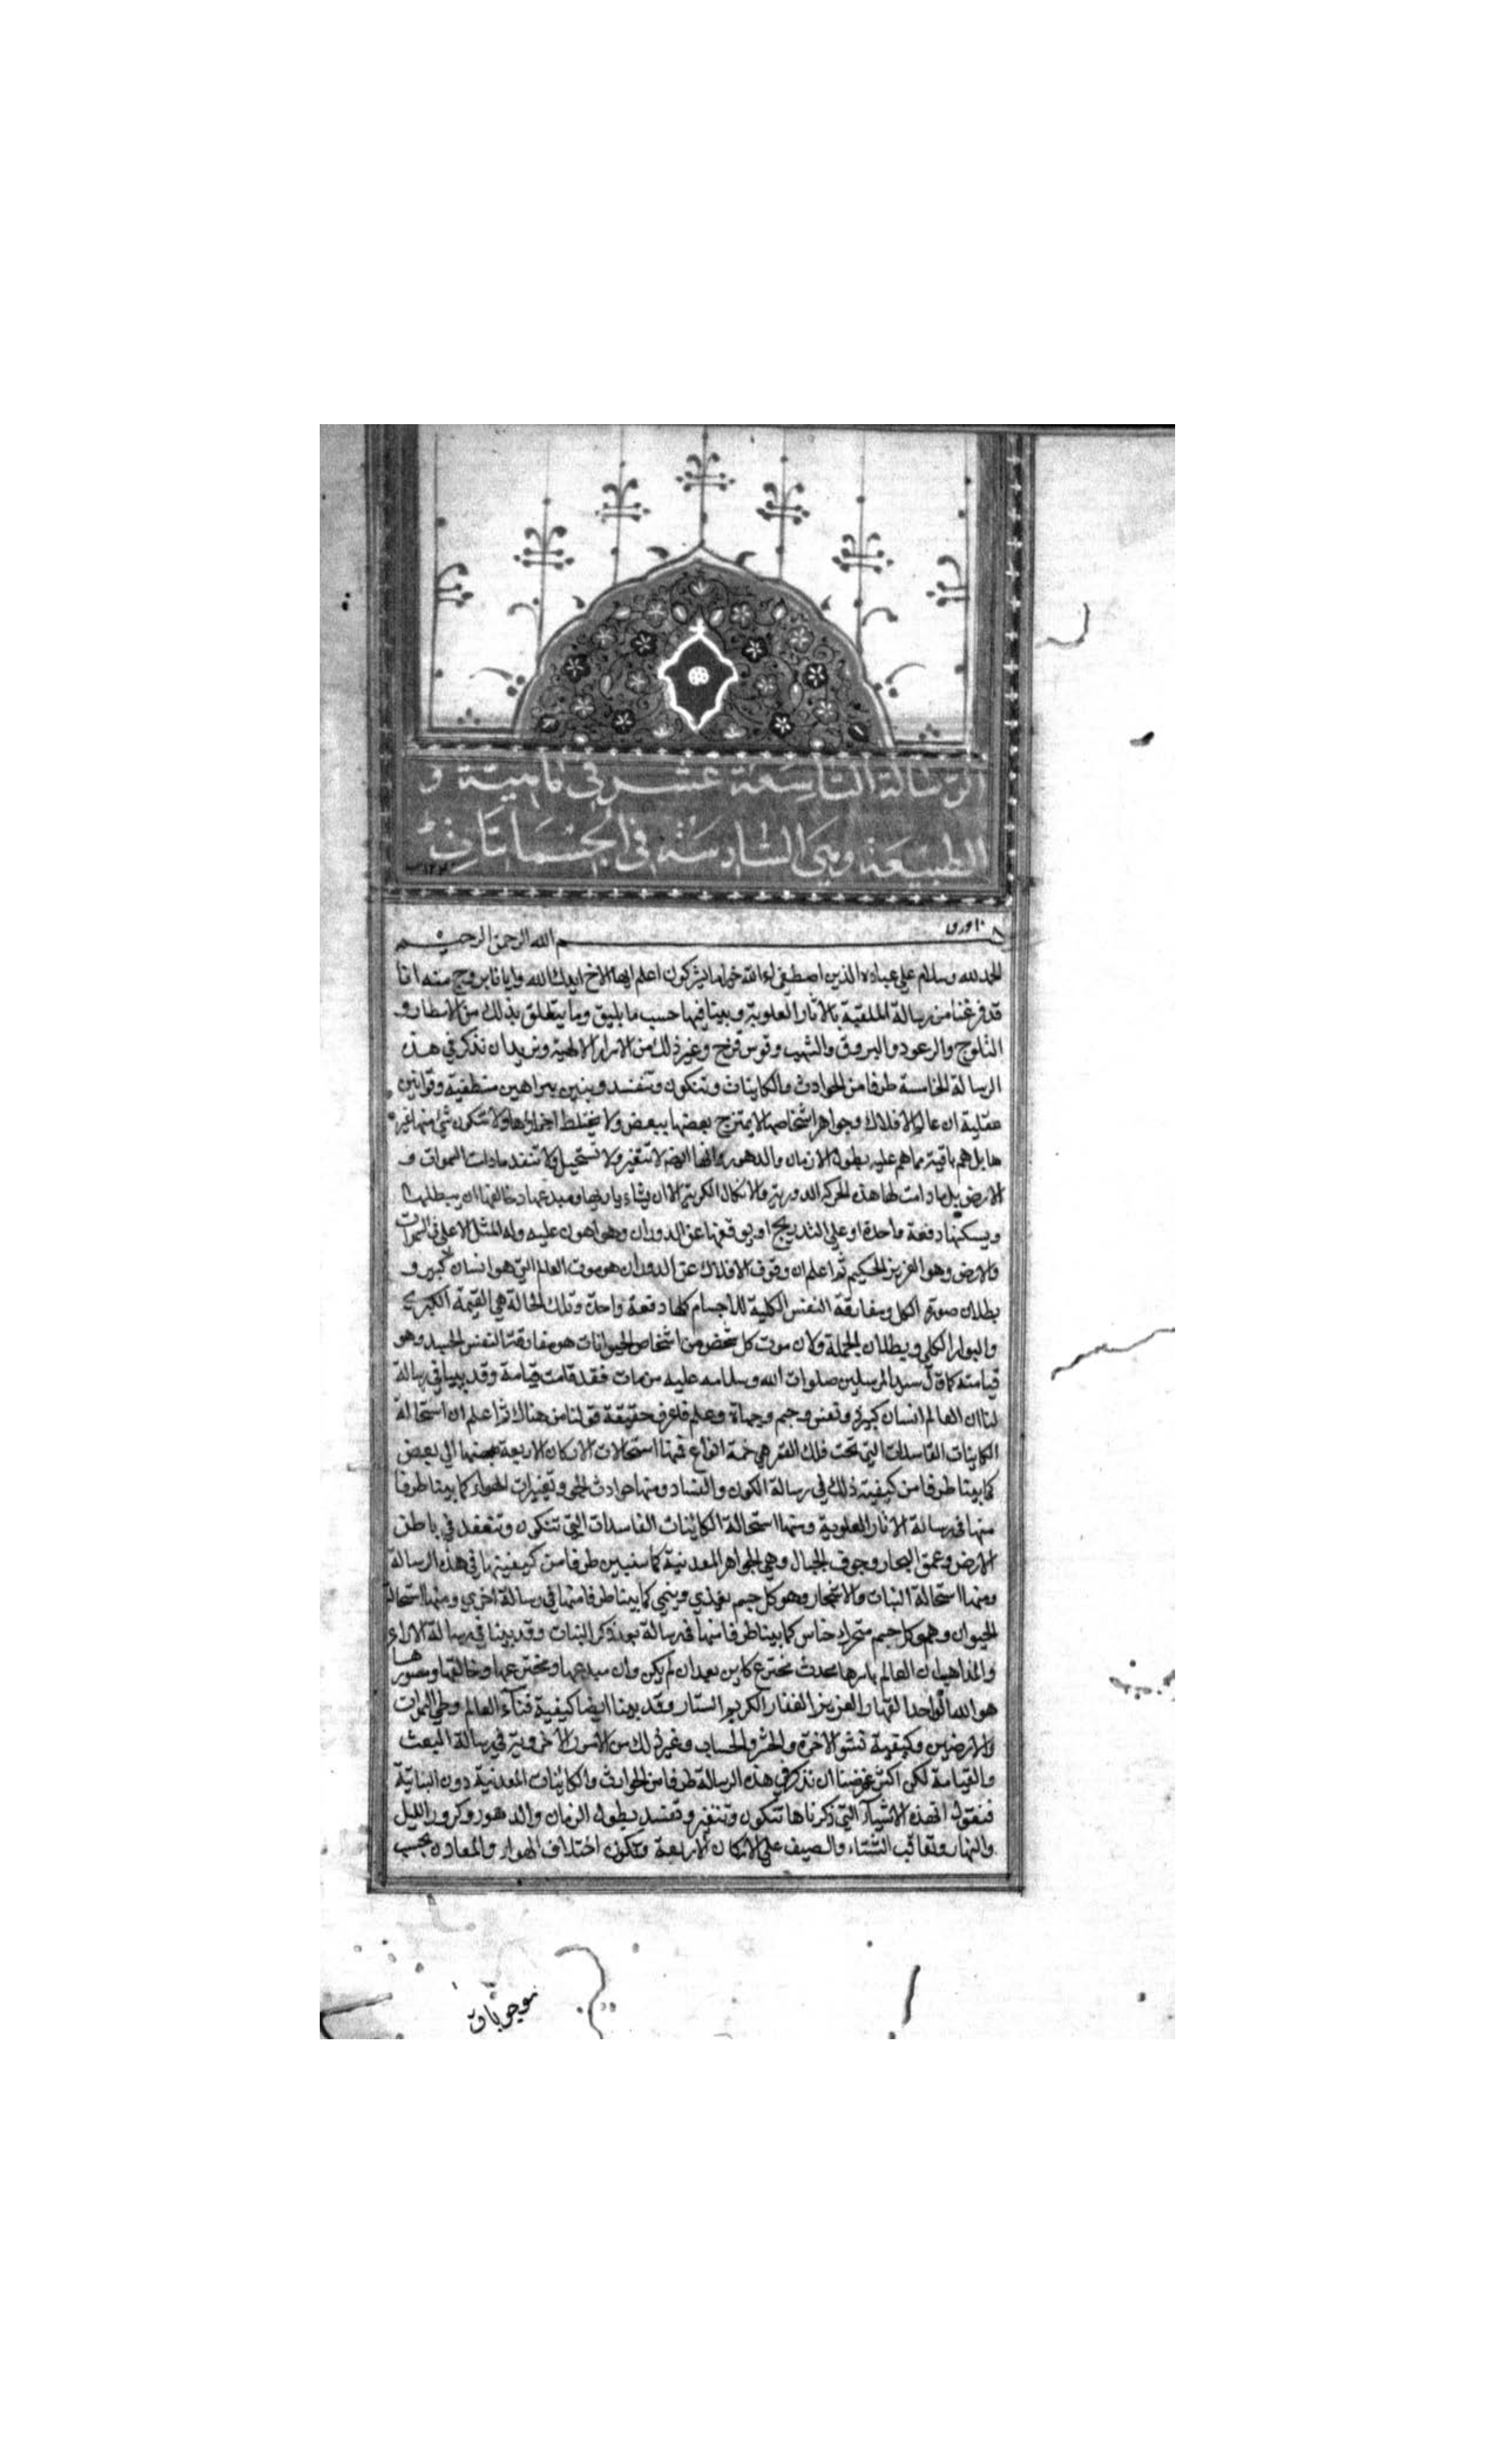 الرسالة التاسعة عشر في ماهية و
الطبيعة وهي السادسة في الجسمانيات
١٠ ورق
بسم الله الرحمن الرحيم
الحمد لله وسلام على عباده الذين اصطفى ءالله خير اما يشركون اعلم ايها الاخ ايدك الله وايانا بروح منه انا
قد فرغنا من رسالة الملقبة بالاثار العلوية وبينا فيها حسب ما يليق وما يتعلق بذلك من الامطار و
الثلوج والرعود والبروق والشهب وقوس قزح وغير ذلك من الاسرار الالهية ونريد ان نذكر في هذه
الرسالة الخامسة طرفا من الحوادث والكاينات وتتكون وتفسد ونبين ببراهين منطقية وقوانين
عقلية ان عالم الافلاك وجواهر اشخاصها لا يمتزج بعضها ببعض ولا يختلط اجزاؤها ولا تتكون شئ منها غير
ها بل هم باقية بما هم عليه بطول الازمان والدهور وانها ايضا لا تتغير ولا تستحيل ولا تنفد مادات السموات و
الارض بل مادامت لها هذه الحركة الدورية والاشكال الكرية الا ان يشاء باريها ومبدعها وخالقها ان يبطلها
ويسكنها دفعة واحدة او على التدريج او يوقفها عن الدوران وهو اهون عليه وله المثل الاعلى في السموات
والارض وهو العزيز الحكيم ثم اعلم ان وقوف الافلاك عن الدوران هو موت العالم التي هو انسان كبير و
بطلان صورة الكل ومفارقة النفس الكلية للاجسام كلها دفعة واحدة وتلك الحالة هي القيمة الكبرى
والبوار الكلي وبطلان الجملة ولان موت كل شخص من اشخاص الحيوانات هو مفارقة النفس الجسد وهو
قيامته كما قال سيد المرسلين صلوات الله وسلامه عليه من مات فقد قامت قيامة وقد بينا في رسالة
لنا ان العالم انسان كبير ونفس وجسم وحياة وعلم فاعرف حقيقة قولنا من هناك ثم اعلم ان استحالة
الكاينات الفاسدات التي تحت فلك القمر هي خمسة انواع فمنها استحالات الاركان الاربعة بعضها الى بعض
كما بينا طرفا من كيفية ذلك في رسالة الكون والفساد ومنها حوادث الجو وتغيرات الهواء كما بينا طرفا
منها في رسالة الاثار العلوية ومنها استحالة الكائنات الفاسدات التي تتكون وتنعقد في باطن
الارض وعمق البحار وجوف الجبال وهي الجواهر المعدنية كما سنبين طرفا من كيفيتها في هذه الرسالة
ومنها استحالة النبات والاشجار وهو كل جسم يغذي وينمي كما بينا طرفا منها في رسالة اخرى ومنها استحالة
الحيوان وهو كل جسم متحرك حساس كما بينا طرفا منها في رسالة بعد ذكر النبات وقد بينا في رسالة الاراء
والمذاهب ان العالم باسرها محدث مخترع كاين بعد ان لم يكن وان مبدعها ومخترعها وخالقها ومصورها
هو الله الواحد القهار العزيز الغفار الكريم الستار وقد بينا ايضا كيفية فناء العالم وطي السموات
والارضين وكيفية نشو الاخرة والحشر والحساب وغير ذلك من الامور الاخروية في رسالة البعث
والقيامة لكن اكثر غرضنا ان نذكر في هذه الرسالة طرفا من الحوادث والكاينات المعدنية دون النباتية
فنقول ان هذه الاشياء التي ذكرناها تتكون وتتغير وتفسد بطول الزمان والدهور وكرور الليل
والنهار وتعاقب الشتاء والصيف على الاركان الاربعة وتكون اختلاف الهوار والمعادن بحسب